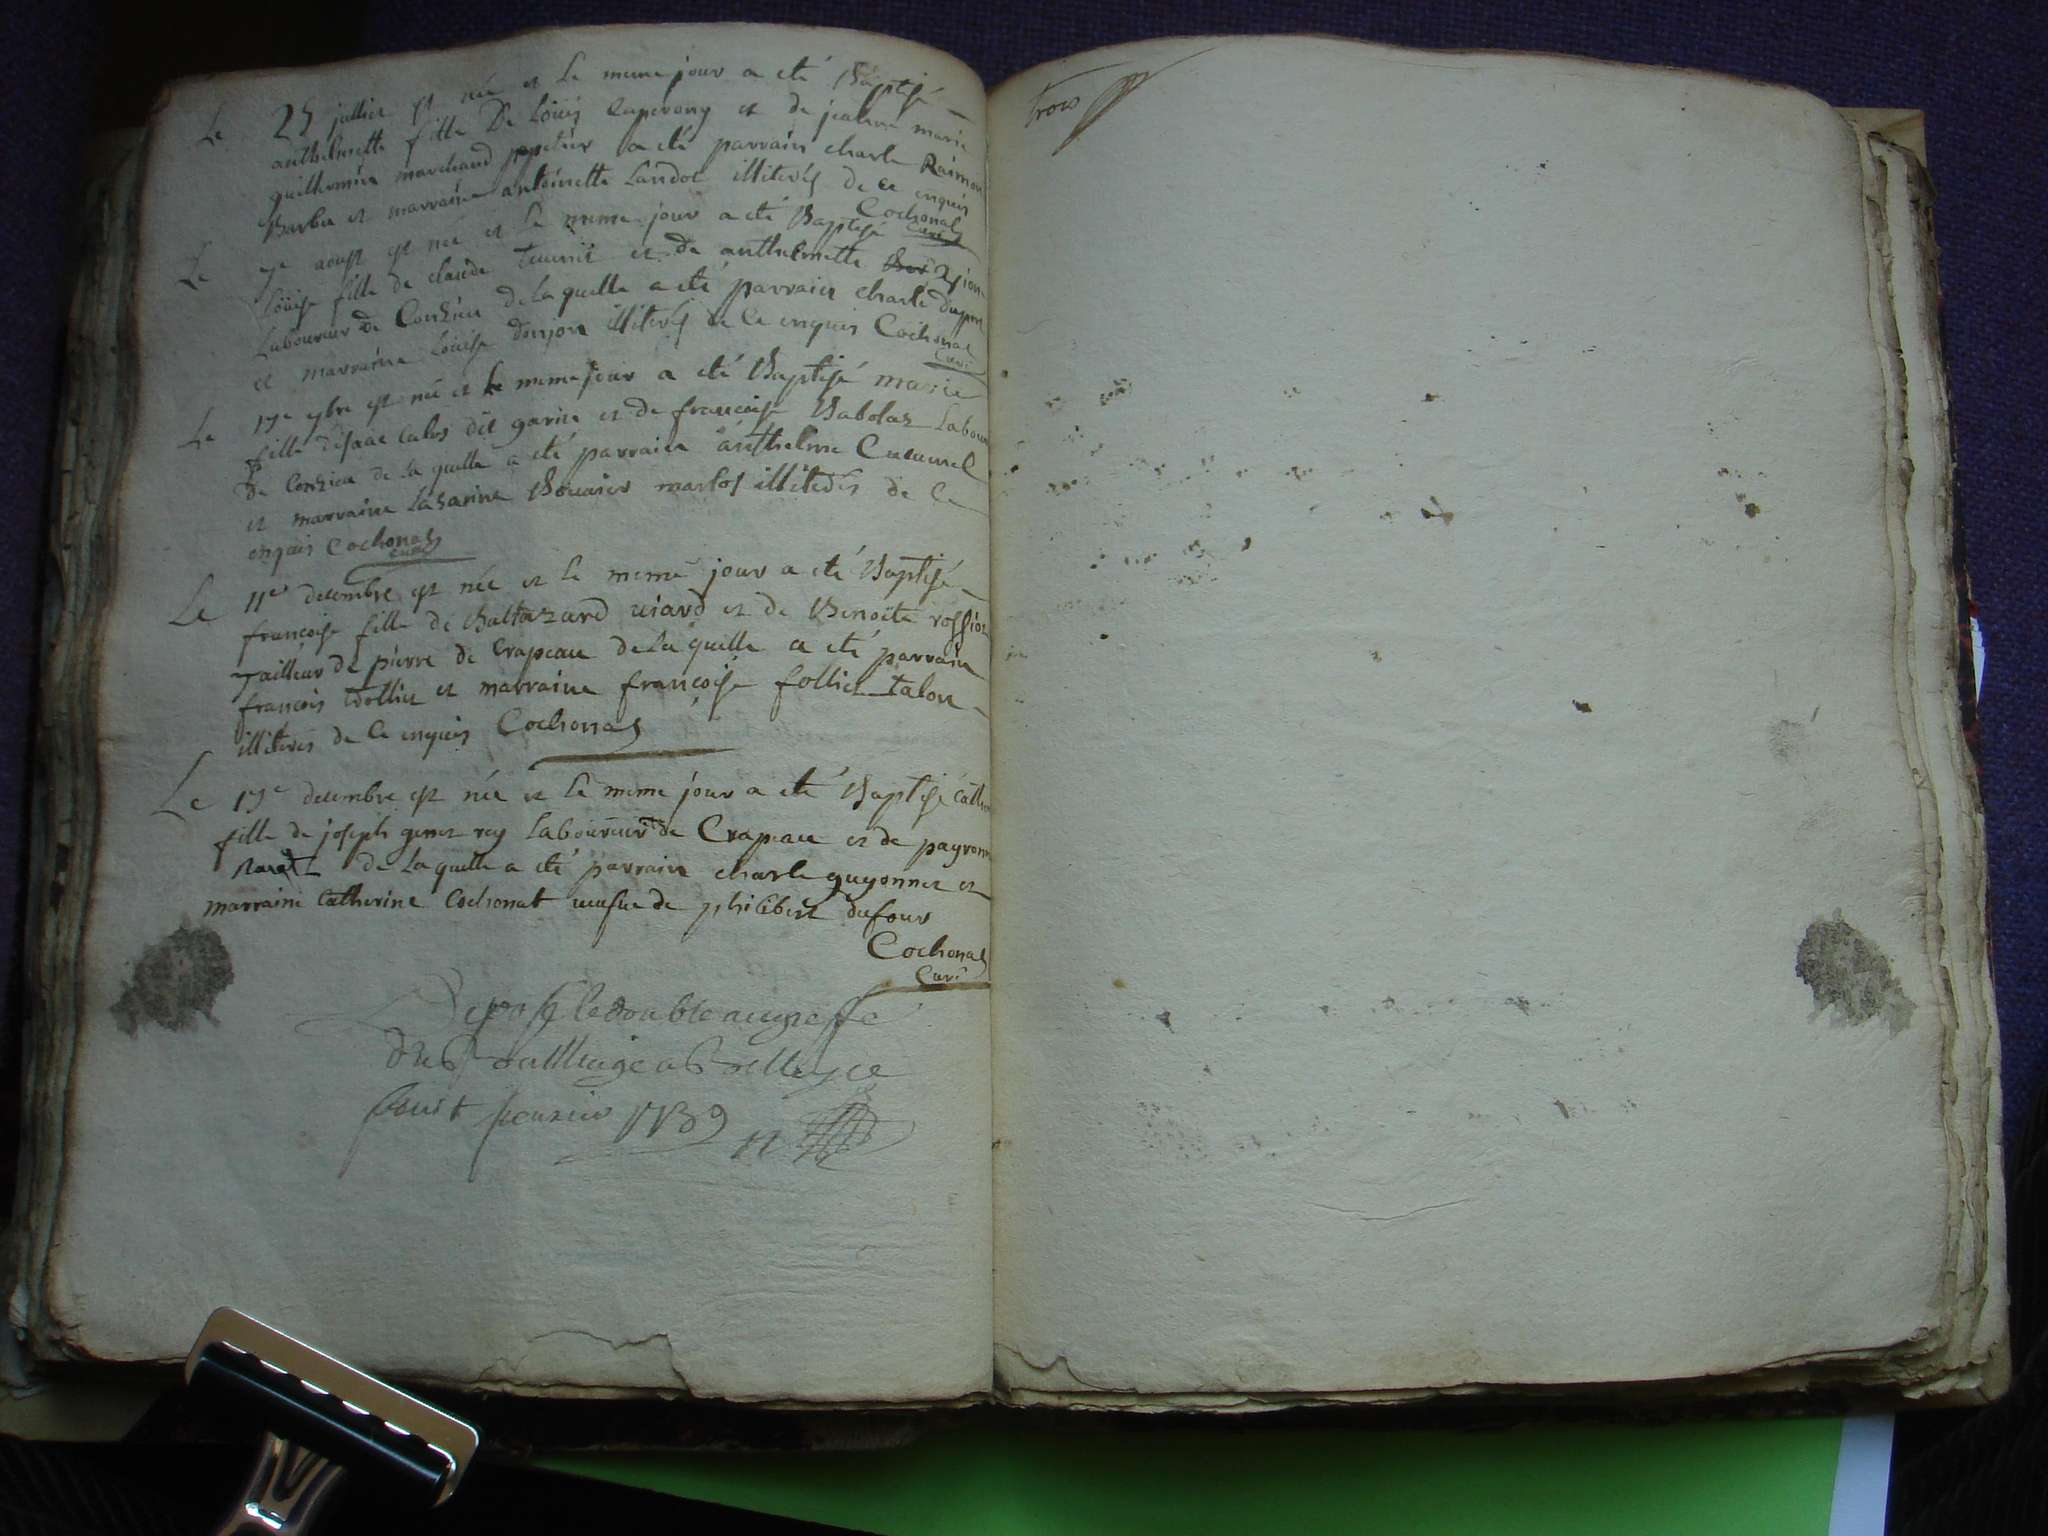 Le 25 juillet est née et le meme jour a eté Baptisé
anthelmette fille De Loüis Caperony et de jeanne marie
guillermin marchand a eté parrain charle Raimon
Barbu et marraine antoinette Landoz illiterés de ce enquis
Cochonat
Curé
Le 7e aoust est née et le meme jour a eté Baptisé
Loüise fille de claude et de anthelmette
Laboureur de Conzieu de la quelle a eté parrain charle dupont
et marraine Loüise donjon illiterés de ce enquis Cochonat
Curé
Le 17e 9bre est née et le meme jour a eté Baptisé marie
fille d'isaac Calos dit garin et de francoise Babolaz Labour
de Conzieu de la quelle a eté parrain anthelme Cucumel
et marraine Lazarine Bouvier marlos illiterés de Ce
enquis Cochonat
Curé
Le 11e decembre est née et le meme jour a eté Baptisé
francoise fille de Baltazard uiard et de Benoite
Tailleur de pierre de Crapeau de la quelle a eté parrain
francois follict et marraine francoise follict talon
illiterés de Ce enquis Cochonat
Le 17e decembre est née et le meme jour a eté Baptisé Cather
fille de joseph genet rey Laboureur de Crapeau et de payronn
de la quelle a eté parrain charle guyonnet et
marraine Catherine Cochonat ueufue de philibert dufour
Cochonat
Curé
Deposé le double au greffe
du Bailliage a Belley ce
huit feurier 1739
trois